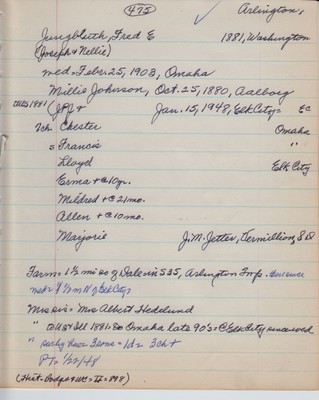 475
Arlington,
Jungbluth, Fred E 1881, Washington
(Joseph & Nellie)
med. Feb. 25, 1903, Omaha
Millie Johnson, Oct. 25, 1880, Aalborg
Jan. 15, 1948, Elk City = EC
7ch. Chester Omaha
s Francis "
Lloyd Elk City
Erma + @ 10yr.
Mildred + @ 21mo.
Allen + @ 10mo.
Marjorie J.M. Jetter, Vermillion, S D
Farm = 1½ mi so of Dale in S35, Arlington Twp.
½ mi N of Elk City
Mrs sis = Mrs Albert Hedelund
Omaha late 90's = @ Elk City
" surv hus = Farms = 1d = 3ch +
PT = 1/22/48
(Hist. Dodge & Wc = II = 898)